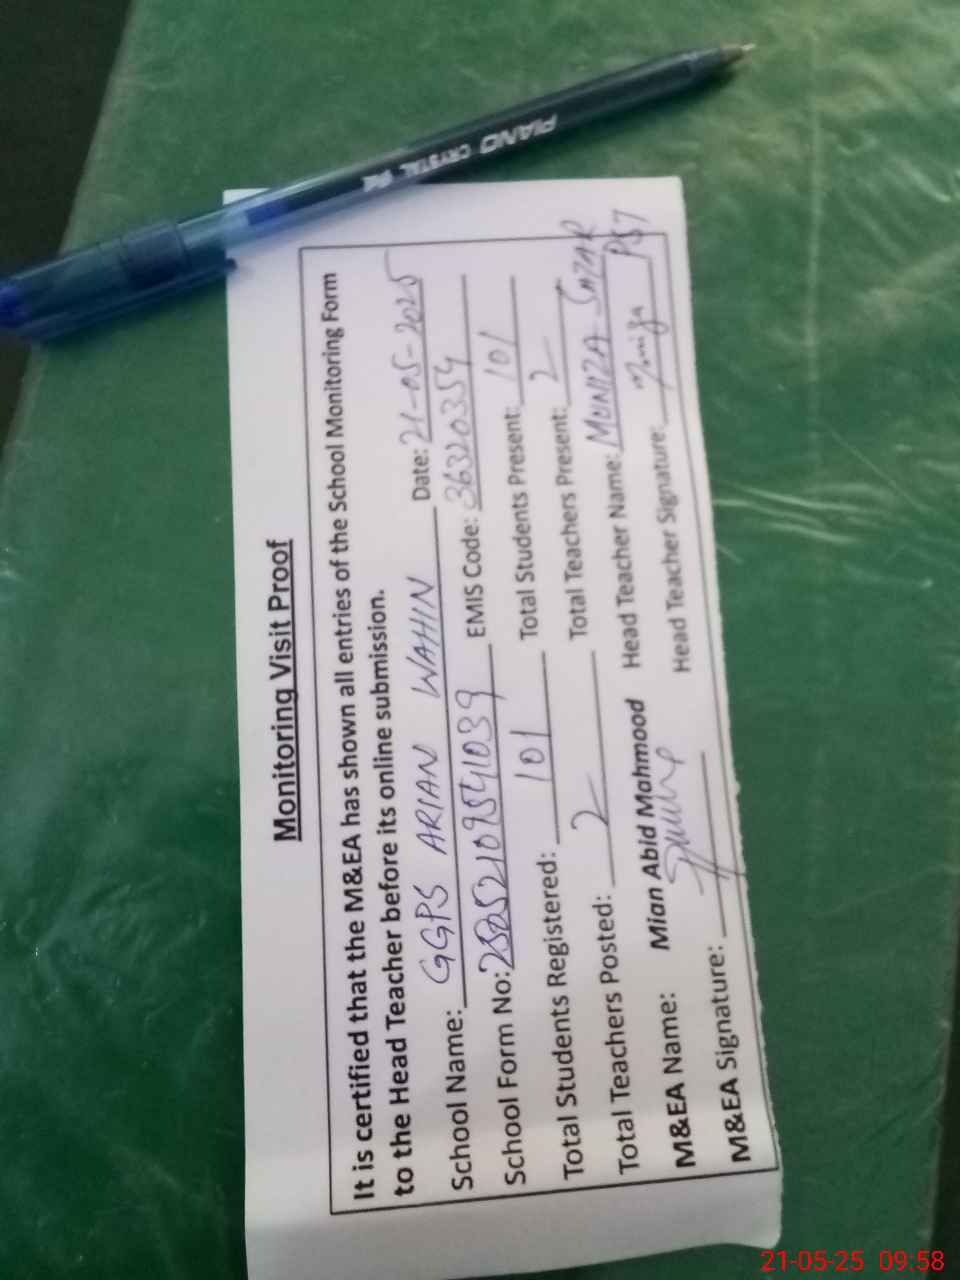 PIANO CRYSTAL
Monitoring Visit Proof
It is certified that the M&EA has shown all entries of the School Monitoring Form
to the Head Teacher before its online submission.
School Name: GGPS ARIAN WAHIN Date: 21-05-2025
School Form No: 25052109541039 EMIS Code: 36320354
Total Students Registered: 101 Total Students Present: 101
Total Teachers Posted: 2 Total Teachers Present: 2
M&EA Name: Mian Abid Mahmood Head Teacher Name: MUNIZA
M&EA Signature: Head Teacher Signature: Muniza
21-05-25 09:58